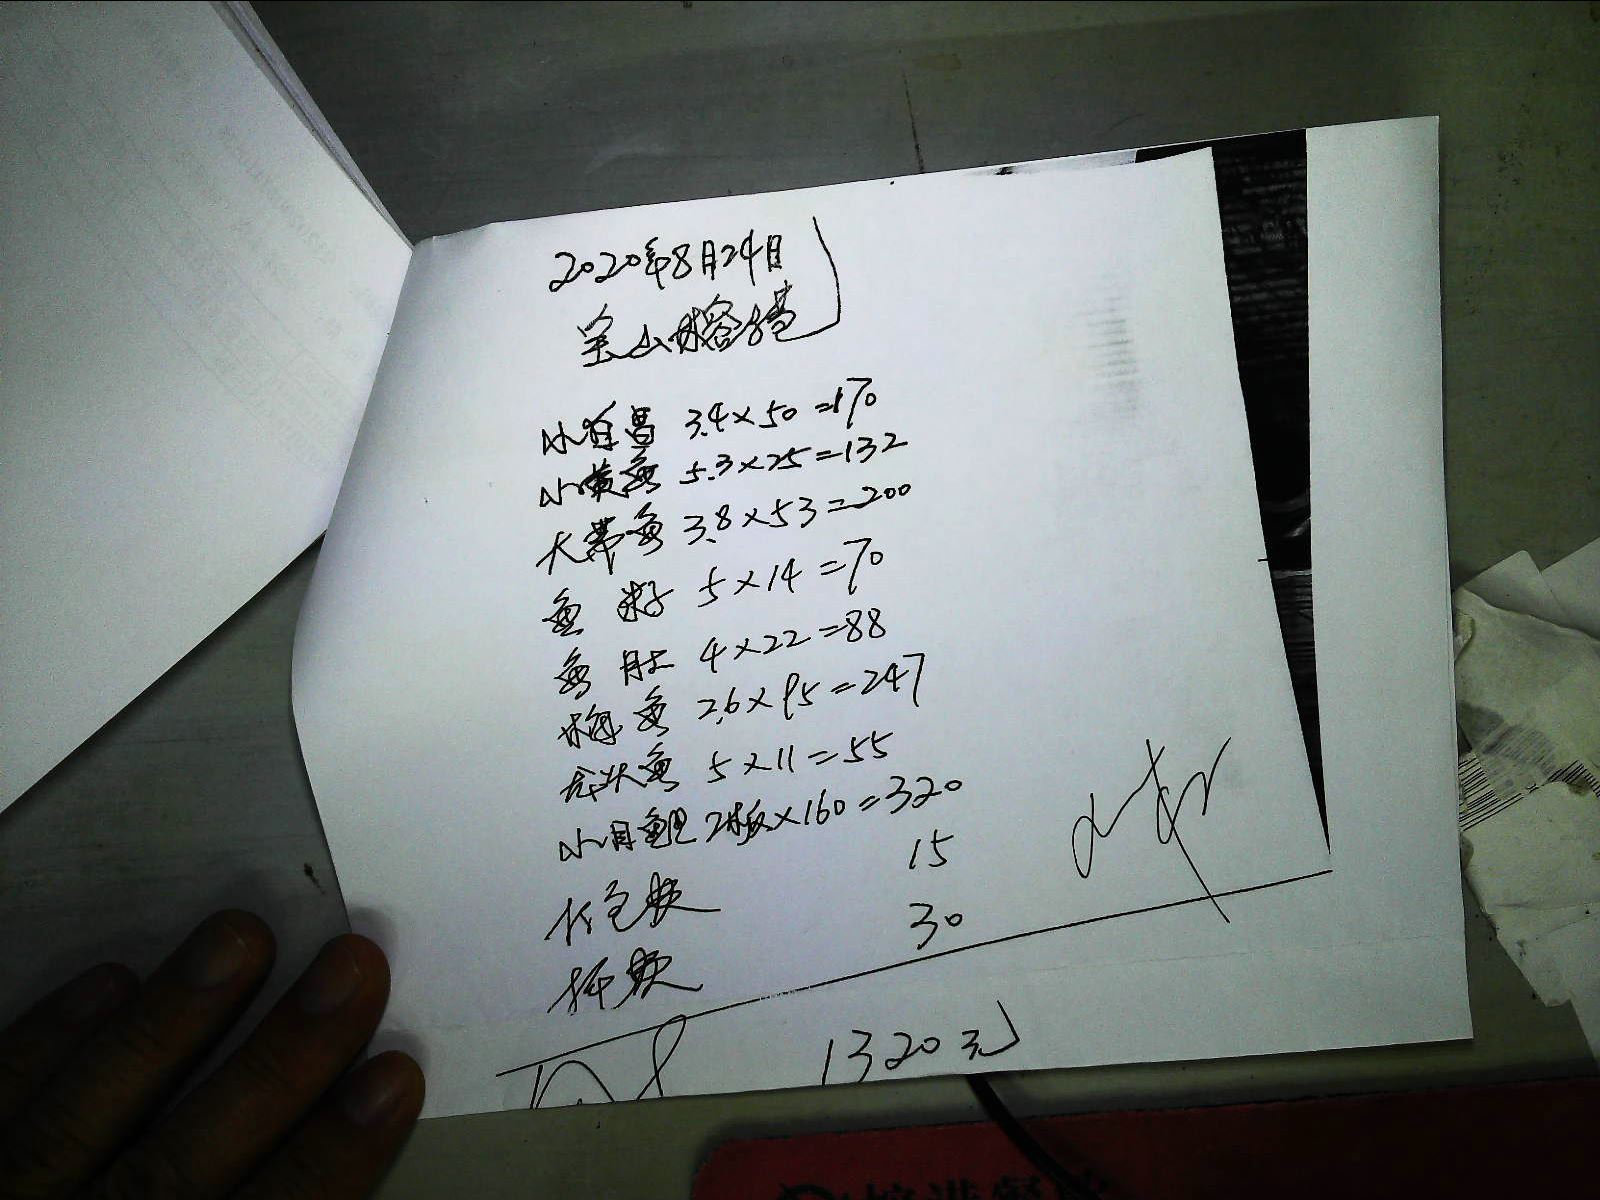 2020年8月24日
宝山
小 昌 3.4×50=170
小黄鱼 5.3×25=132
大带鱼 3.8×53=200
鱼籽 5×14=70
鱼肚 4×22=88
梅鱼 2.6×95=247
龙头鱼 5×11=55
小目鱼 2板×160=320
打包款 15
30
1320元